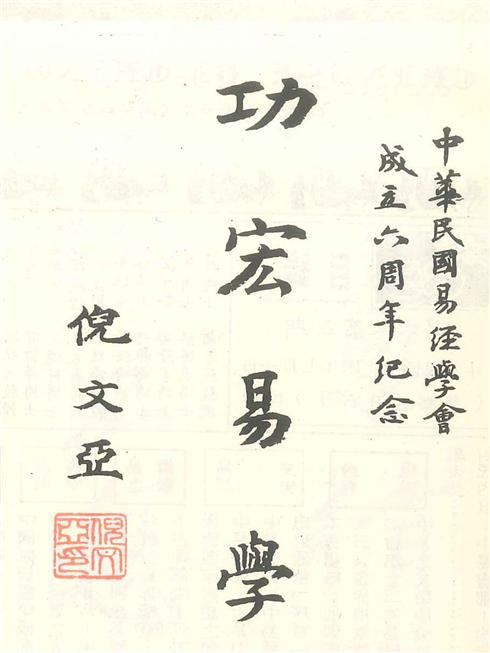 中華民國易經學會
成立六周年纪念
功宏易學
倪文亞
倪文
亞印